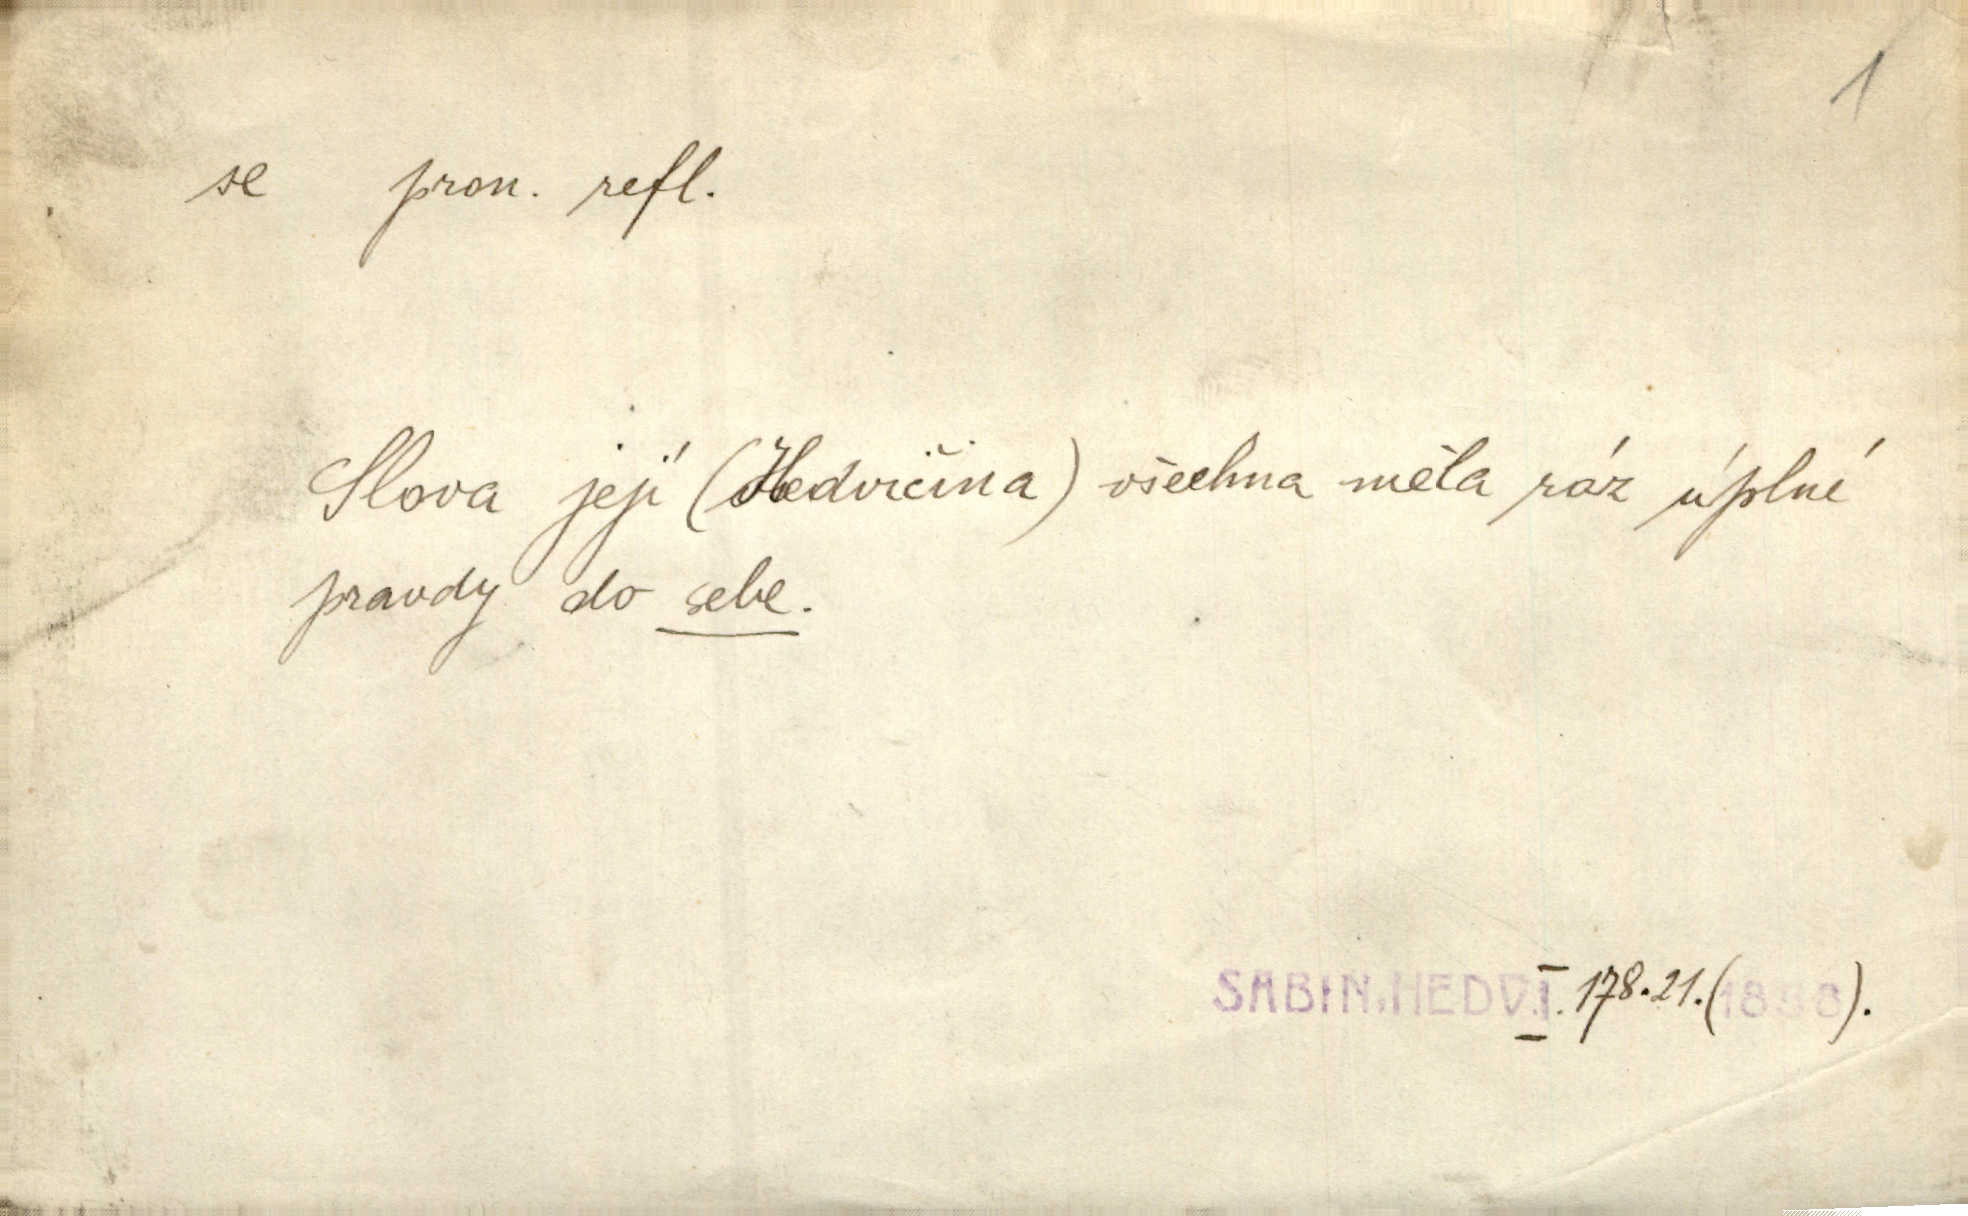 1
se pron. refl.
Slova její (Hedvičina) všechna měla ráz úplné
pravdy do sebe.
SABIN, HEDV. I. 178.21. (1858).